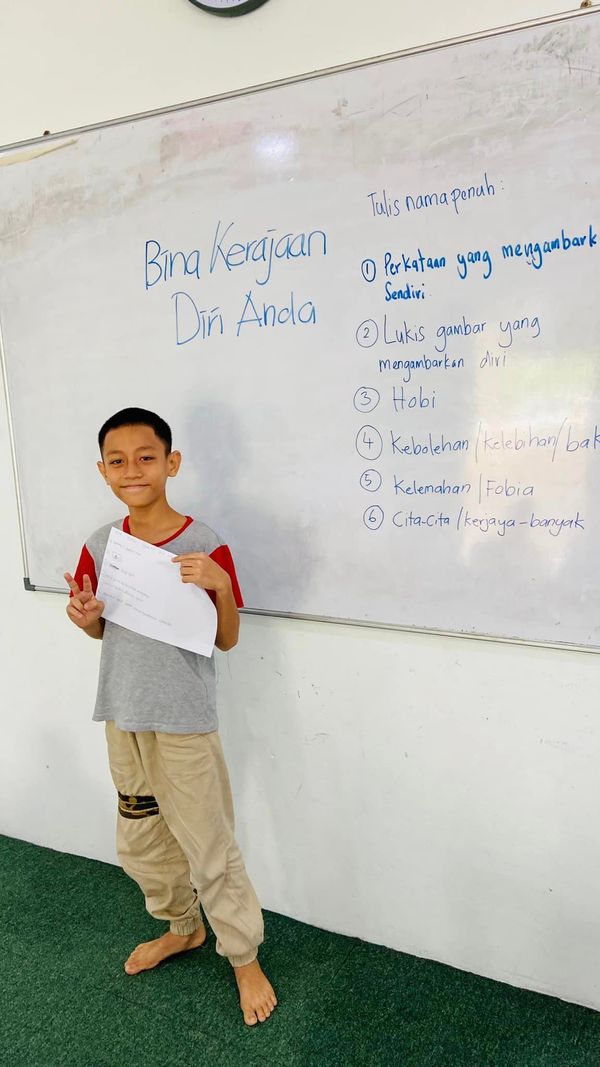 Bina Kerajaan
Diri Anda
Tulis nama penuh:
① Perkataan yang mengambark
Sendiri.
② Lukis gambar yang
mengambarkan diri
③ Hobi
④ Kebolehan/kelebihan/bak
⑤ Kelemahan/Fobia
⑥ Cita-Cita/kerjaya-banyak